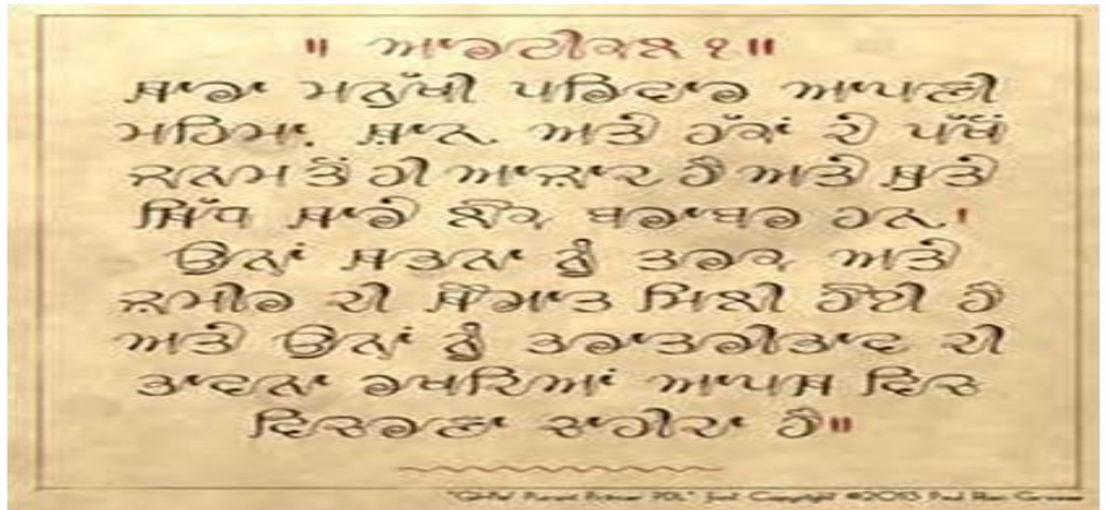 ॥ ਆਰਟੀਕਲ ੧॥
ਸਾਰਾ ਮਨੁੱਖੀ ਪਰਿਵਾਰ ਆਪਣੀ
ਮਹਿਮਾ, ਸ਼ਾਨ ਅਤੇ ਹੱਕਾਂ ਦੇ ਪੱਖੋਂ
ਜਨਮ ਤੋਂ ਹੀ ਆਜ਼ਾਦ ਹੈ ਅਤੇ ਸੁਤੇ
ਸਿੱਧ ਸਾਰੇ ਲੋਕ ਬਰਾਬਰ ਹਨ।
ਉਨਾਂ ਸਭਨਾ ਨੂੰ ਤਰਕ ਅਤੇ
ਜ਼ਮੀਰ ਦੀ ਸੌਗਾਤ ਮਿਲੀ ਹੋਈ ਹੈ
ਅਤੇ ਉਨਾਂ ਨੂੰ ਭਰਾਤਰੀਭਾਵ ਦੀ
ਭਾਵਨਾ ਰਖਦਿਆਂ ਆਪਸ ਵਿਚ
ਵਿਚਰਣਾ ਚਾਹੀਦਾ ਹੈ॥
Font Copyright ©2013 Paul